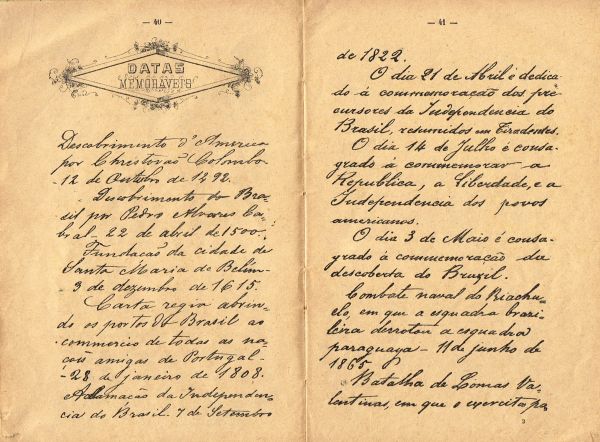 — 40 —
DATAS
MEMORÁVEIS
Descobrimento d'America
por Christovaõ Colombo-
-12 de Outubro de 1492.
- Descobrimento do Bra-
sil por Pedro Alvares Ca-
bral - 22 de abril de 1500.
Fundacaõ da cidade de
Santa Maria de Belém-
-3 de dezembro de 1615.
Carta regia abrin-
do os portos do Brasil ao
commercio de todas as na-
ções amigas de Portugal-
-28 de janeiro de 1808.
Aclamação da Independen-
cia do Brasil. 7 de Setembro
— 41 —
de 1822.
O dia 21 de Abril é dedica-
do á commemoração dos pre-
cursores da Independencia do
Brasil, resumidos em Tiradentes.
O dia 14 de Julho é consa-
grado á commemorar a
Republica, a Liberdade, e a
Independencia dos povos
americanos.
O dia 3 de Maio é consa-
grado à commemoração da
descoberta do Brazil.
Combate naval do Riachu-
elo, em que a esquadra brazi-
leira derrotou a esquadra
paraguaya - 11 de junho de
1865
Batalha de Lomas Va-
lentinas, em que o exercito pa-
3